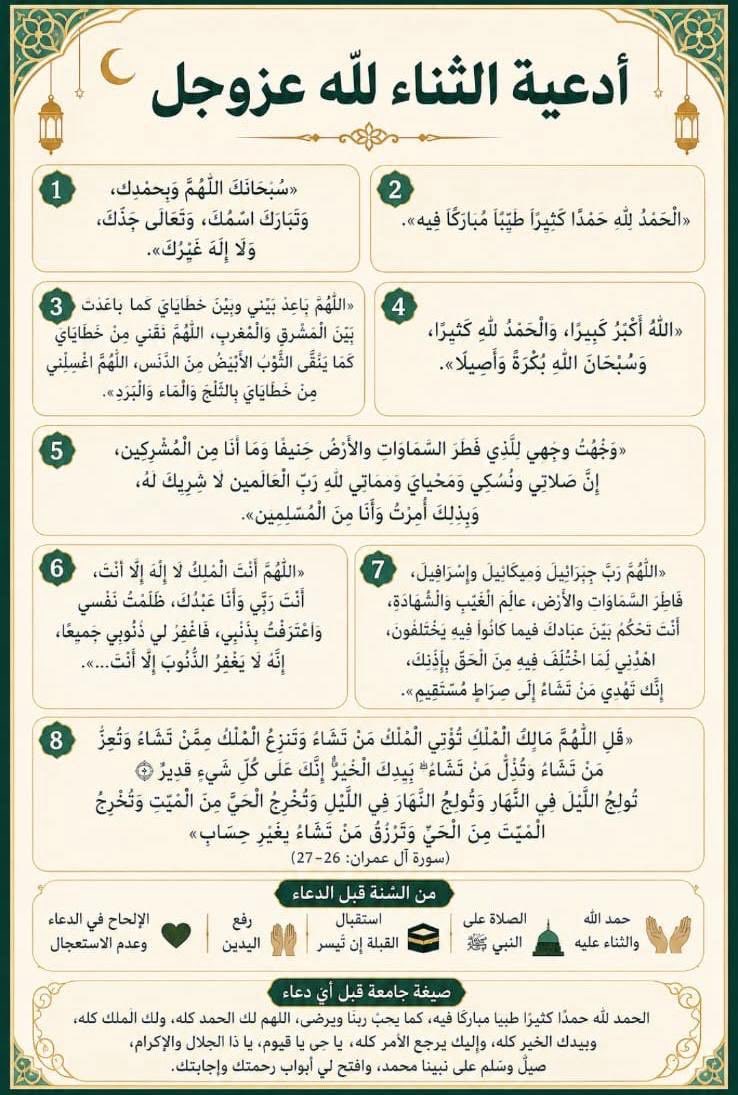 أدعية الثناء للّه عزوجل
1
«سُبْحَانَكَ اللّٰهُمَّ وَبِحمْدِك،
وَتَبَارَكَ اسْمُكَ، وَتَعَالَى جَدُّكَ،
وَلَا إِلَهَ غَيْرُكَ».
2
«الْحَمْدُ لِلّٰهِ حَمْدًا كَثِيرًا طَيِّبًا مُبَارَكًا فِيه».
3
«اللّٰهُمَّ بَاعِدْ بَيْني وبَيْنَ خطَايَايَ كَما باعَدْت
بَيْنَ الْمَشْرقِ وَالْمْغربِ، اللّٰهُمَّ نَقّني مِنْ خَطَايَايَ
كَمَا يَنْقَّى الثَّوْبُ الأَبْيَضُ مِنَ الدَّنَس، اللّٰهُمَّ اغْسِلْني
مِنْ خَطَايَايَ بِالثَّلْجَ وَالْمَاء وَالْبَرَدِ».
4
«اللّٰهُ أَكْبَرُ كَبِيرًا، وَالْحَمْدُ للّٰهِ كَثيرًا،
وَسُبْحَانَ اللّٰهِ بُكْرَةً وَأَصِيلًا».
5
«وَجَّهْتُ وجْهي لِلَّذِي فَطَرَ السَّمَاوَاتِ والأَرْضَ حَنيفًا وَمَا أنَا مِن الْمُشْرِكِين،
إنَّ صَلاتي ونُسُكِي وَمَحْيايَ وَممَاتي للّٰهِ رَبِّ الْعَالَمين لَا شَرِيكَ لَهُ،
وَبِذلِكَ أُمِرْتُ وَأَنَا مِنَ الْمُسْلِمِين».
6
«اللّٰهُمَّ أَنْتَ الْمْلِكُ لَا إلٰهَ إِلَّا أنْتَ،
أَنْتَ رَبِّي وَأَنَا عَبْدُكَ، ظَلَمْتُ نَفْسي
وَاعْتَرَفْتُ بِذَنْبي، فَاغْفِرُ لي ذُنُوبي جَميعًا،
إنَّهُ لَا يَغْفِرُ الذُّنُوبَ إلَّا أَنْتَ...».
7
«اللّٰهُمَّ رَبَّ جِبْرَائِيلَ وَميكَائِيلَ وإسْرَافِيلَ،
فَاطِرَ السَّمَاوَاتِ والأَرْض، عالِمَ الْغَيْبِ والْشَّهَادَةِ،
أنْتَ تَحَكُمُ بَيْنَ عبَادكَ فيما كانُوا فيهِ يَخْتَلفُونَ،
اهْدِنِي لمَا اخْتُلِفَ فِيه مِنَ الْحَقِّ بِإذْنِكَ،
إِنَّكَ تَهْدِي مَنْ تَشَاءُ إِلَى صِرَاطٍ مُسْتَقِيمٍ».
8
«قَلِ اللّٰهُمَّ مَالِكَ الْمْلْكِ تُؤْتِي الْمْلْكَ مَنْ تَشَاءُ وَتَنزِعُ الْمْلْكَ مِمَّنْ تَشَاءُ وَتُعِزُّ
مَنْ تَشَاءُ وَتُذِلُّ مَنْ تَشَاءُ ۖ بِيَدِكَ الْخَيْرُ إِنَّكَ عَلَى كُلِّ شَيءٍ قَديرٌ
تُولِجُ اللَّيْلَ فِي النَّهَار وَتُولِجُ النَّهَارَ فِي اللَّيْلِ وَتُخْرِجُ الْحَيَّ مِنَ الْمْيِّتِ وَتُخْرِجُ
الْمْيِّتَ مِنَ الْحَيِّ وَتَرْزُقُ مَنْ تَشَاءُ بِغَيْرِ حِسَابٍ»
(سورة آل عمران: 26-27)
من السُنة قبل الدعاء
حمد الله
والثناء عليه
الصلاة على
النبي ﷺ
استقبال
القبلة إن تَيسر
رفع
اليدين
الإلحاح في الدعاء
وعدم الاستعجال
صيغة جامعة قبل أي دعاء
الحمد للّٰه حمدًا كثيرًا طيبا مباركًا فيه، كما يحبّ ربنا ويرضى، اللهم لك الحمد كله، ولك الملك كله،
وبيدك الخير كله، وإليك يرجع الأمر كله، يا حي يا قيوم، يا ذا الجلال والإكرام،
صلِّ وسَلم على نبينا محمد، وافتح لي أبواب رحمتك وإجابتك.